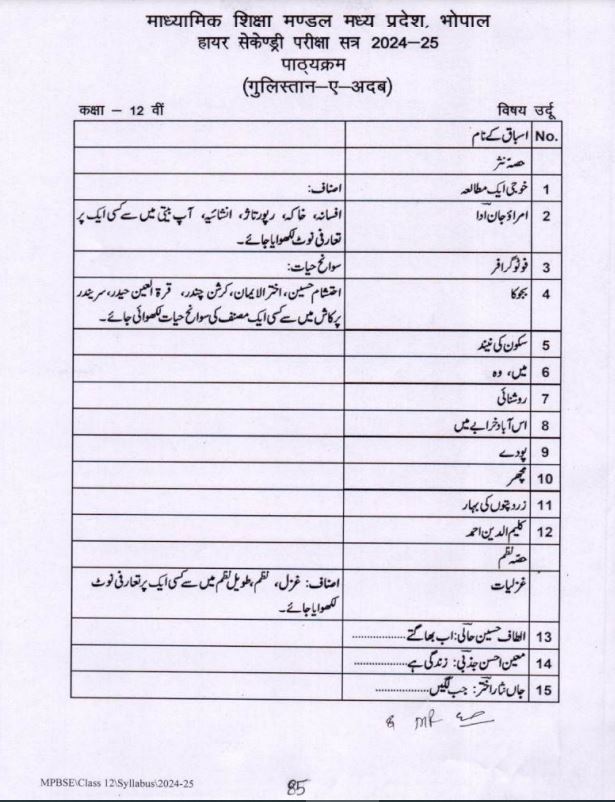 माध्यामिक शिक्षा मण्डल मध्य प्रदेश, भोपाल
हायर सेकेण्ड्री परीक्षा सत्र 2024–25
पाठ्यक्रम
(गुलिस्तान–ए–अदब)
कक्षा – 12 वीं विषय उर्दू
No. اسباق کے نام
حصۂ نثر
1 خوجی ایک مطالعہ اصناف:
2 امراؤ جان ادا افسانہ، خاکہ، رپورتاژ، انشائیہ، آپ بیتی میں سے کسی ایک پر
تعارفی نوٹ لکھوایا جائے۔
3 فوٹو گرافر سوانح حیات:
4 بجوکا احتشام حسین، اختر الایمان، کرشن چندر، قرۃ العین حیدر، سریندر
پرکاش میں سے کسی ایک مصنف کی سوانح حیات لکھوائی جائے۔
5 سکون کی نیند
6 میں، وہ
7 روشنائی
8 اس آباد خرابے میں
9 پودے
10 مچھر
11 زرد پتوں کی بہار
12 کلیم الدین احمد
حصۂ نظم
غزلیات اصناف: غزل، نظم، طویل نظم میں سے کسی ایک پر تعارفی نوٹ
لکھوایا جائے۔
13 الطاف حسین حالی: اب بھاگتے ................
14 معین احسن جذبی: زندگی ہے ................
15 جاں نثار اختر: جب لگیں ................
MPBSE\Class 12\Syllabus\2024-25
85